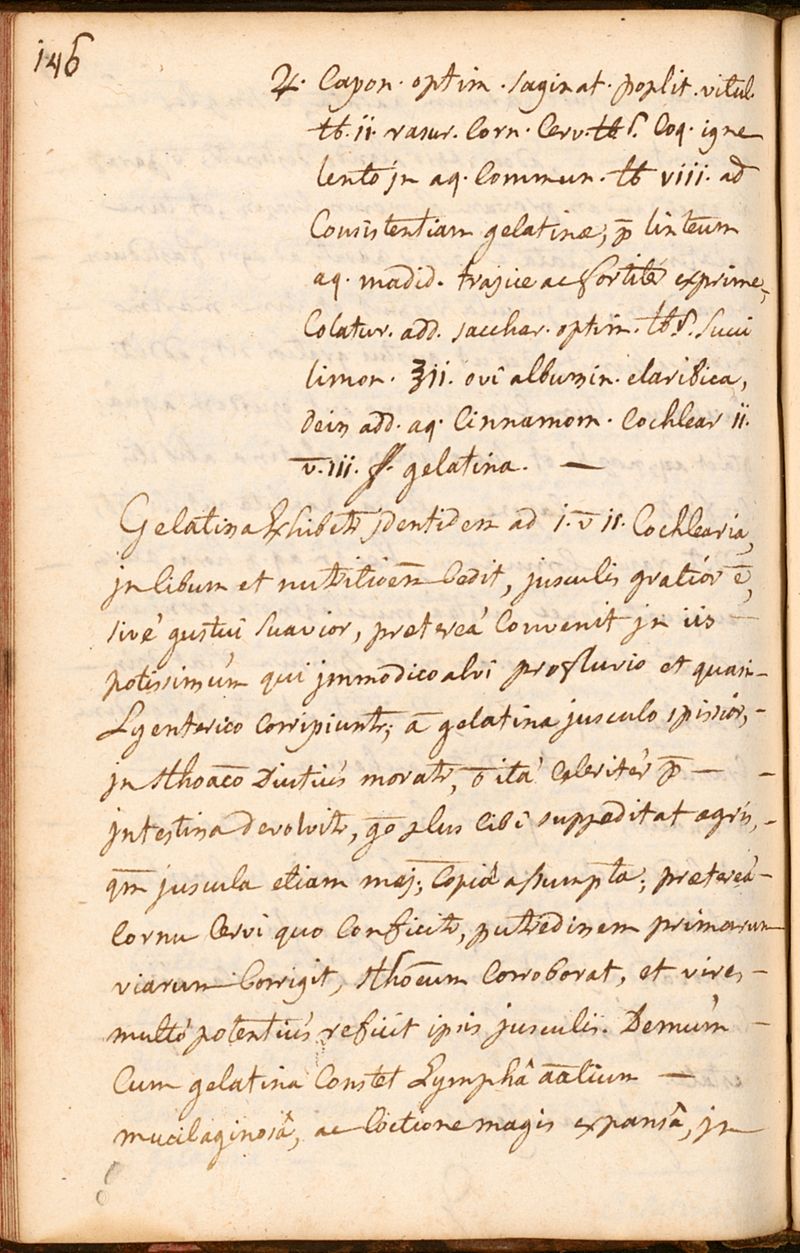 146
♃. Capon. optim. saginat. poplit. vitul.
℔. ii. rasur. Corn. Cerv. ℔ ß. Coq. igne
lento jn aq. Commun. ℔ viii. ad
Consistentiam gelatinæ; p̄ linteum
aq. madid. trajice ac fortitèr exprime,
Colatur. add. sacchar. optim. ℔ ß. Succi
limon. ℥ii. ovi albumin. clarifica,
dein add. aq. Cinnamom. Cochlear ii.
v̄. iii. f. gelatina. —
Gelatina Exhibetr jdentidem ad i. v̄ ii. Cochlearia,
jn Cibum et nutritioēm Cedit, jusculis gratiór ē,
sivé gustui Suavior, prætereá Convenit jn iis
potissimúm qui jmmodico alvi profluvio et quasi
Lyenterico Corripiuntr; ā gelatina jusculo spissiór,
jn sthoāco Diutiús moratr, ō itá Celeritér p̄ —
jntestina devolvitr, q̄o plus Cibi suppeditat ægris,
q̄m juscula etiam maj; Copiâ assumpta; prætereá
Cornu Cervi quo Conficitr, putredinem primarum
viarum Corrigit, sthōcum Corroborat, et vires
multó potentiús reficit ipsis jusculis. Demúm
Cum gelatina Constet Lymphâ āālium —
mucilaginosâ, ac Coctione magis expansâ, jn